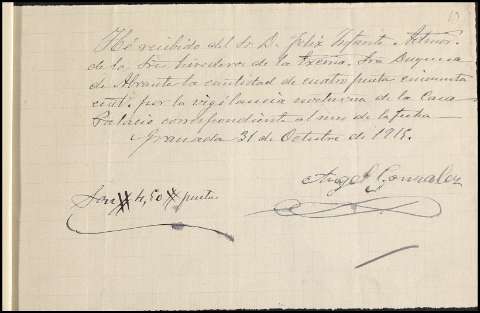 He recibido del Sr. D. Felix Infante
de los Sres herederos de la Excma. Sra Duquesa
de Abrante la cantidad de cuatro ptas cincuenta
cent. por la vigilancia nocturna de la Casa
Palacio correspondiente al mes de la fecha
Granada 31 de Octubre de 191
Angel Gonzalez
Son # 4,50 # ptas